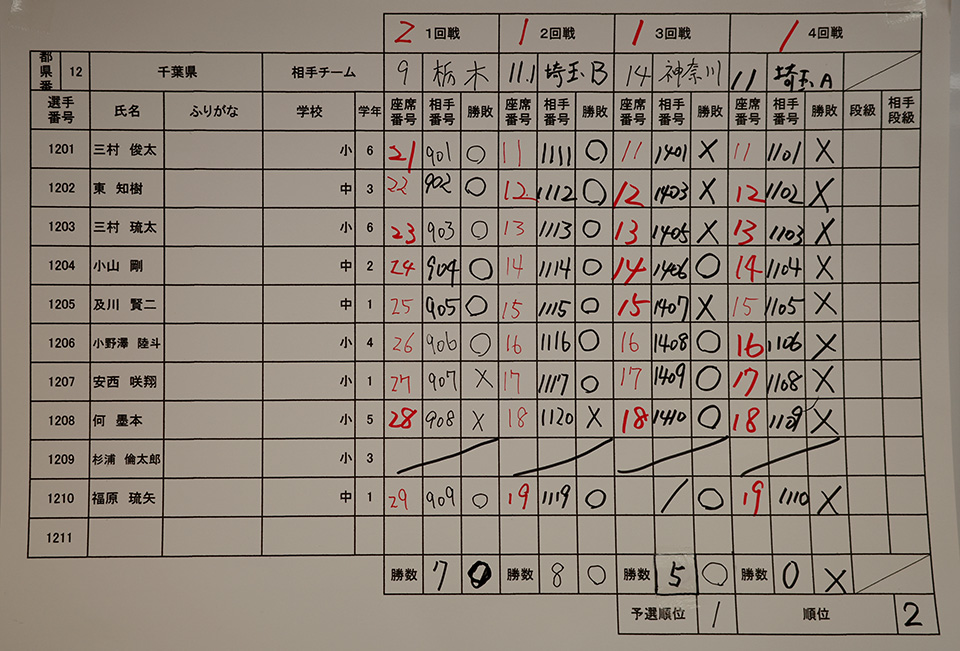 2 1回戦 1 2回戦 1 3回戦 1 4回戦
都県番 12 千葉県 相手チーム 9 栃木 11.1 埼玉B 14 神奈川 11 埼玉A
選手番号 氏名 ふりがな 学校 学年 座席番号 相手番号 勝敗 座席番号 相手番号 勝敗 座席番号 相手番号 勝敗 座席番号 相手番号 勝敗 段級 相手段級
1201 三村 俊太 小 6 21 901 ○ 11 1111 ○ 11 1401 X 11 1101 X
1202 東 知樹 中 3 22 902 ○ 12 1112 ○ 12 1403 X 12 1102 X
1203 三村 琉太 小 6 23 903 ○ 13 1113 ○ 13 1405 X 13 1103 X
1204 小山 剛 中 2 24 904 ○ 14 1114 ○ 14 1406 ○ 14 1104 X
1205 及川 賢二 中 1 25 905 ○ 15 1115 ○ 15 1407 X 15 1105 X
1206 小野澤 陸斗 小 4 26 906 ○ 16 1116 ○ 16 1408 ○ 16 1106 X
1207 安西 咲翔 小 1 27 907 X 17 1117 ○ 17 1409 ○ 17 1108 X
1208 何 墨本 小 5 28 908 X 18 1120 X 18 1410 ○ 18 X
1209 杉浦 倫太郎 小 3
1210 福原 琉矢 中 1 29 909 ○ 19 1119 ○ / ○ 19 1110 X
1211
勝数 7 ○ 勝数 8 ○ 勝数 5 ○ 勝数 0 X
予選順位 1 順位 2